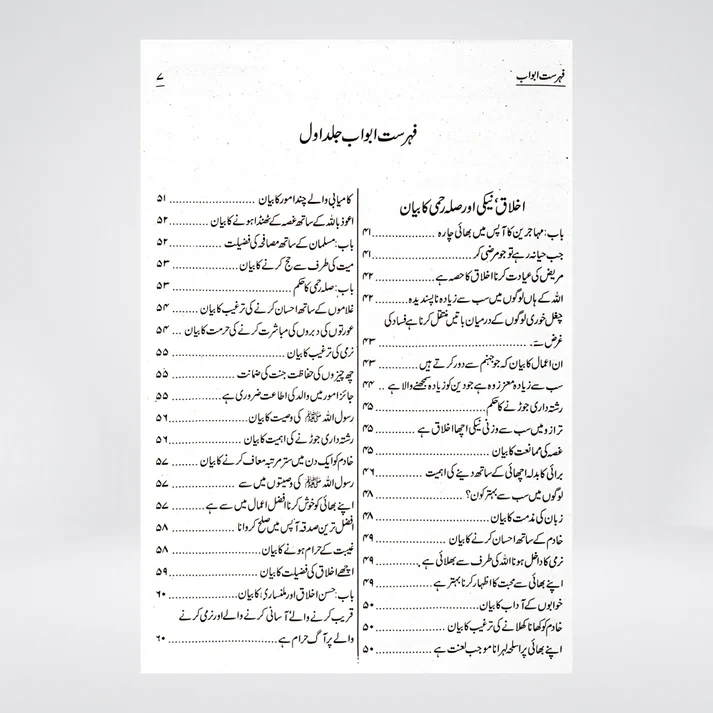 فہرست ابواب
۷
فہرست ابواب جلد اول
اخلاق، نیکی اور صلہ رحمی کا بیان
باب: مہاجرین کا آپس میں بھائی چارہ ۴۱
جب حیا نہ رہے تو جو مرضی کر ۴۱
مریض کی عیادت کرنا اخلاق کا حصہ ہے ۴۲
اللہ کے ہاں لوگوں میں سب سے زیادہ ناپسندیدہ ۴۲
چغل خوری لوگوں کے درمیان باتیں منتقل کرنا ہے فساد کی
غرض سے۔ ۴۳
ان اعمال کا بیان کہ جو جہنم سے دور کرتے ہیں ۴۳
سب سے زیادہ معزز وہ ہے جو دین کو زیادہ سمجھنے والا ہے ۴۴
رشتہ داری جوڑنے کا حکم ۴۵
ترازو میں سب سے وزنی نیکی اچھا اخلاق ہے ۴۵
غصہ کی ممانعت کا بیان ۴۵
برائی کا بدلہ اچھائی کے ساتھ دینے کی اہمیت ۴۶
لوگوں میں سب سے بہتر کون؟ ۴۸
زبان کی مذمت کا بیان ۴۸
خادم کے ساتھ احسان کرنے کا بیان ۴۹
نرمی کا داخل ہونا اللہ کی طرف سے بھلائی ہے ۴۹
اپنے بھائی سے محبت کا اظہار کرنا بہتر ہے ۴۹
خوابوں کے آداب کا بیان ۵۰
خادم کو کھانا کھلانے کی ترغیب کا بیان ۵۰
اپنے بھائی پر اسلحہ لہرانا موجب لعنت ہے ۵۰
کامیابی والے چند امور کا بیان ۵۱
اعوذ باللہ کے ساتھ غصہ کے ٹھنڈا ہونے کا بیان ۵۲
باب: مسلمان کے ساتھ مصافحہ کی فضیلت ۵۲
میت کی طرف سے حج کرنے کا بیان ۵۳
باب: صلہ رحمی کا حکم ۵۳
غلاموں کے ساتھ احسان کرنے کی ترغیب کا بیان ۵۴
عورتوں کی دبروں کی مباشرت کرنے کی حرمت کا بیان ۵۴
نرمی کی ترغیب کا بیان ۵۵
چھ چیزوں کی حفاظت جنت کی ضمانت ۵۵
جائز امور میں والد کی اطاعت ضروری ہے ۵۵
رسول اللہ ﷺ کی وصیت کا بیان ۵۶
رشتہ داری جوڑنے کی اہمیت کا بیان ۵۶
خادم کو ایک دن میں ستر مرتبہ معاف کرنے کا بیان ۵۷
رسول اللہ ﷺ کی وصیتوں میں سے ۵۷
اپنے بھائی کو خوش کرنا افضل اعمال میں سے ہے ۵۷
افضل ترین صدقہ آپس میں صلح کروانا ۵۸
غیبت کے حرام ہونے کا بیان ۵۸
اچھے اخلاق کی فضیلت کا بیان ۵۹
باب: حسن اخلاق اور ملنساری کا بیان ۶۰
قریب کرنے والے، آسانی کرنے والے اور نرمی کرنے
والے پر آگ حرام ہے ۶۰